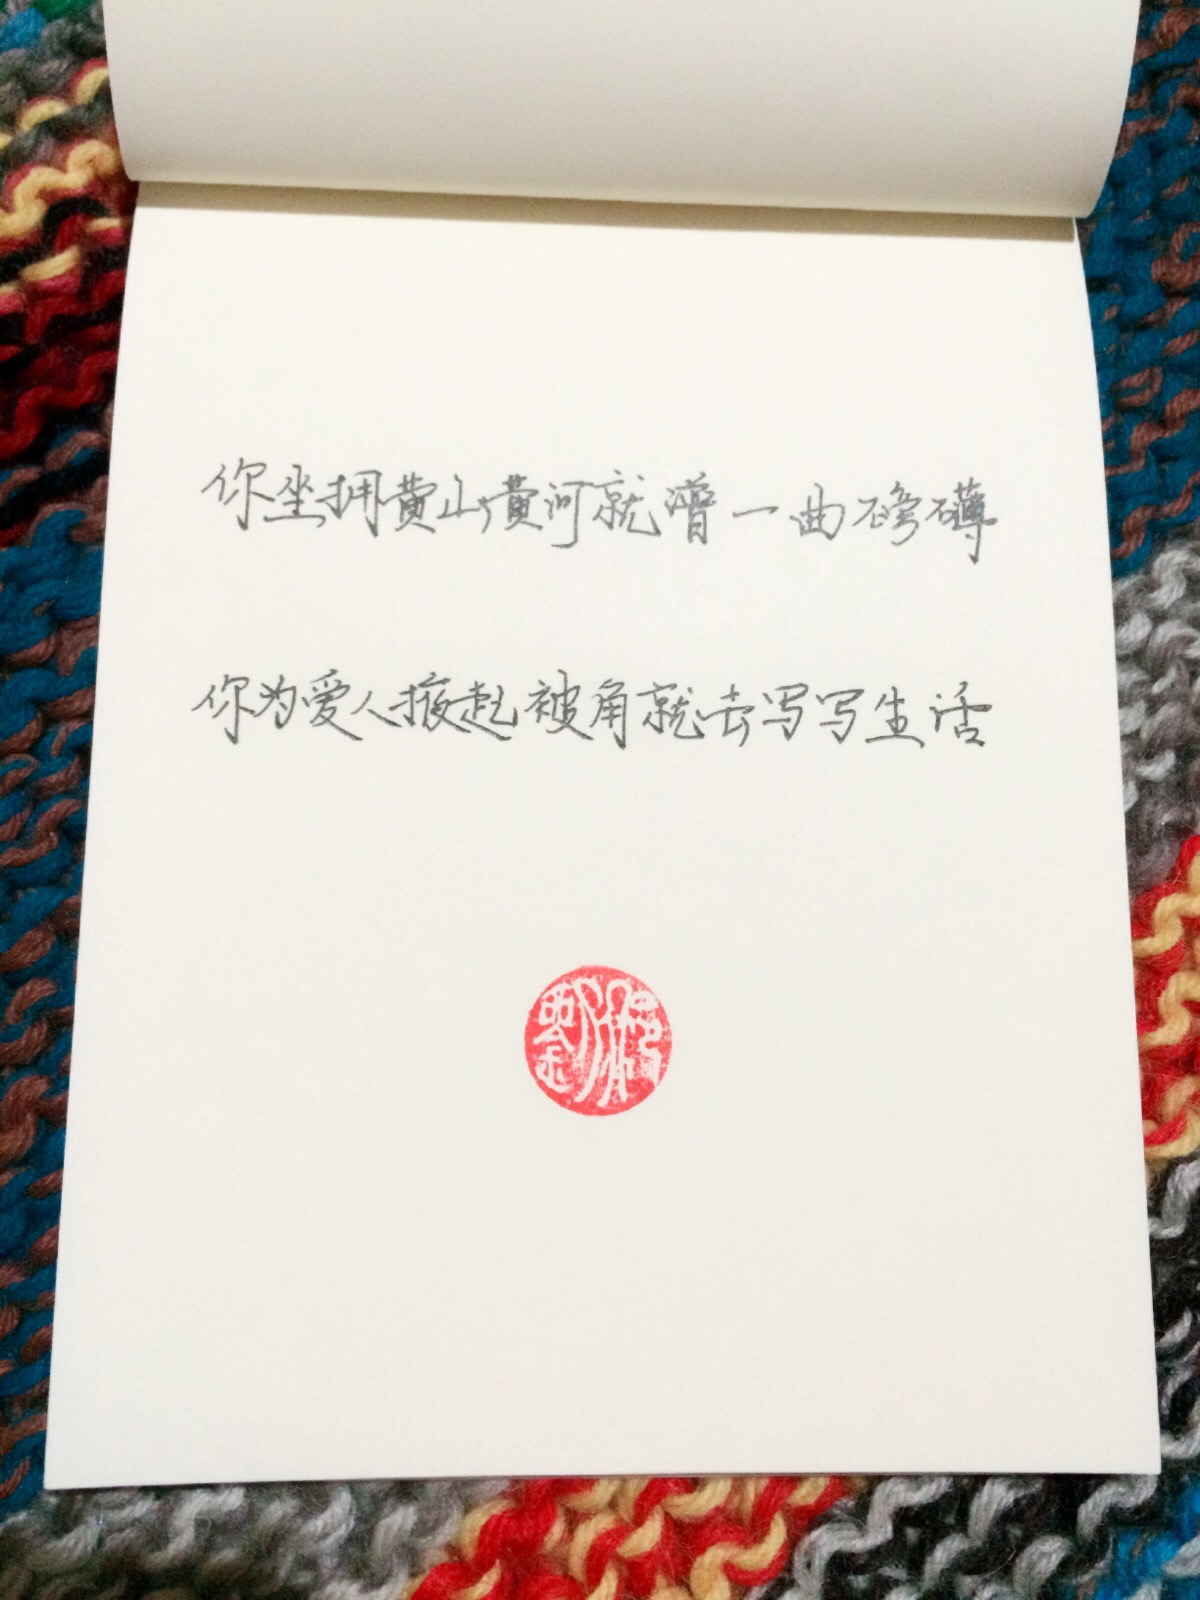 你坐拥黄山黄河就谱一曲磅礴
你为爱人掖起被角就去写写生活